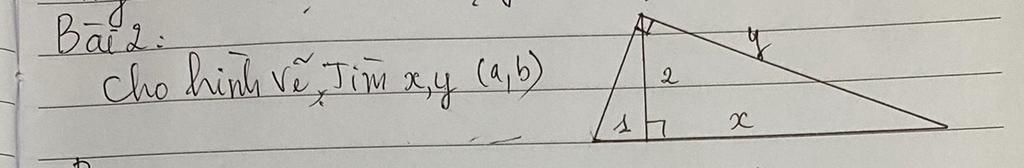 Bài 2:
Cho hình vẽ, Tìm x, y (a,b)
y
2
1
x